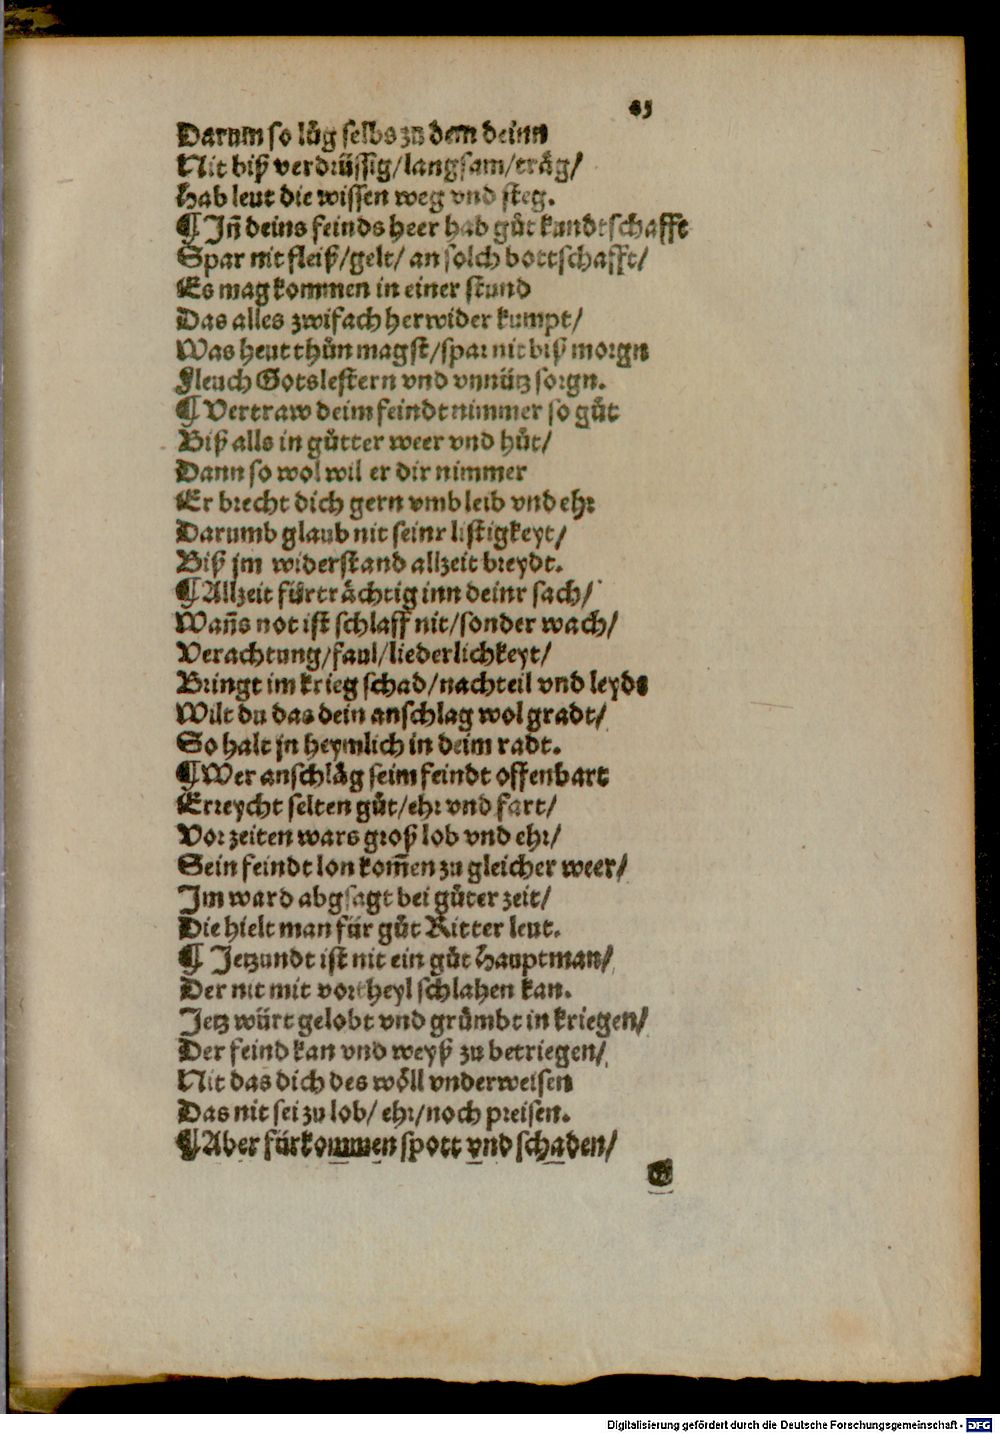 45
Darum so lůg selbs zu dem deinn
Nit biß verdrüssig/langsam/träg/
Hab leut die wissen weg vnd steg.
¶ Jñ deins feinds heer hab gůt kundtschafft
Spar nit fleiß/gelt/ an solch bottschafft/
Es mag kommen in einer stund
Das alles zwifach herwider kumpt/
Was heut thůn magst/spar nit biß morgn
Fleuch Gotslestern vnd vnnütz sorgn.
¶ Vertraw deim feindt nimmer so gůt
Biß alls in gůtter weer vnd hůt/
Dann so wol wil er dir nimmer
Er brecht dich gern vmb leib vnd ehr
Darumb glaub nit seinr listigkeyt/
Biß jm widerstand allzeit breydt.
¶ Allzeit fürträchtig inn deinr sach/
Wañs not ist schlaff nit/sonder wach/
Verachtung/faul/liederlichkeyt/
Bringt im krieg schad/nachteil vnd leyds
Wilt du das dein anschlag wol gradt/
So halt jn heymlich in deim radt.
¶ Wer anschläg seim feindt offenbart
Erreycht selten gůt/ehr vnd fart/
Vor zeiten wars groß lob vnd ehr/
Sein feindt lon kom̃en zu gleicher weer/
Jm ward abgsagt bei gůter zeit/
Die hielt man für gůt Ritter leut.
¶ Jetzundt ist nit ein gůt Hauptman/
Der nit mit vortheyl schlahen kan.
Jetz würt gelobt vnd grůmbt in kriegen/
Der feind kan vnd weyß zu betriegen/
Nit das dich des wöll vnderweisen
Das nit sei zu lob/ ehr/noch preisen.
¶ Aber fürkommen spott vnd schaden/
Digitalisierung gefördert durch die Deutsche Forschungsgemeinschaft - DFG